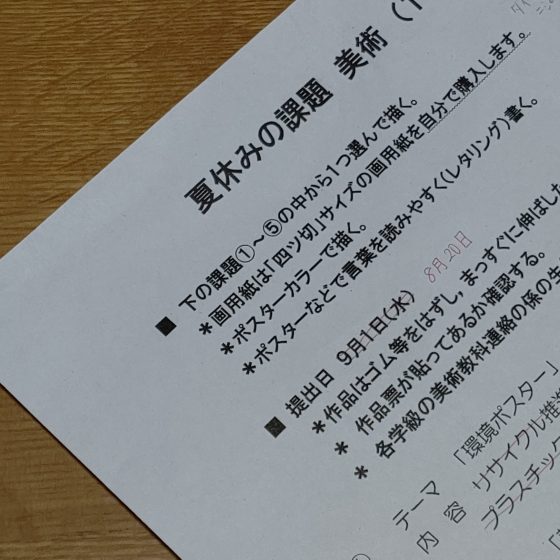 夏休みの課題 美術 (1
■ 下の課題①～⑤の中から1つ選んで描く。
＊画用紙は「四ツ切」サイズの画用紙を自分で購入します。
＊ポスターカラーで描く。
＊ポスターなどで言葉を読みやすく(レタリング)書く。
8月20日
■ 提出日 9月1日(水)
＊作品はゴム等をはずし,まっすぐに伸ばした
＊ 作品票が貼ってあるか確認する。
＊ 各学級の美術教科連絡の係の生
テーマ 「環境ポスター」
内 容 リサイクル推進
プラスチック